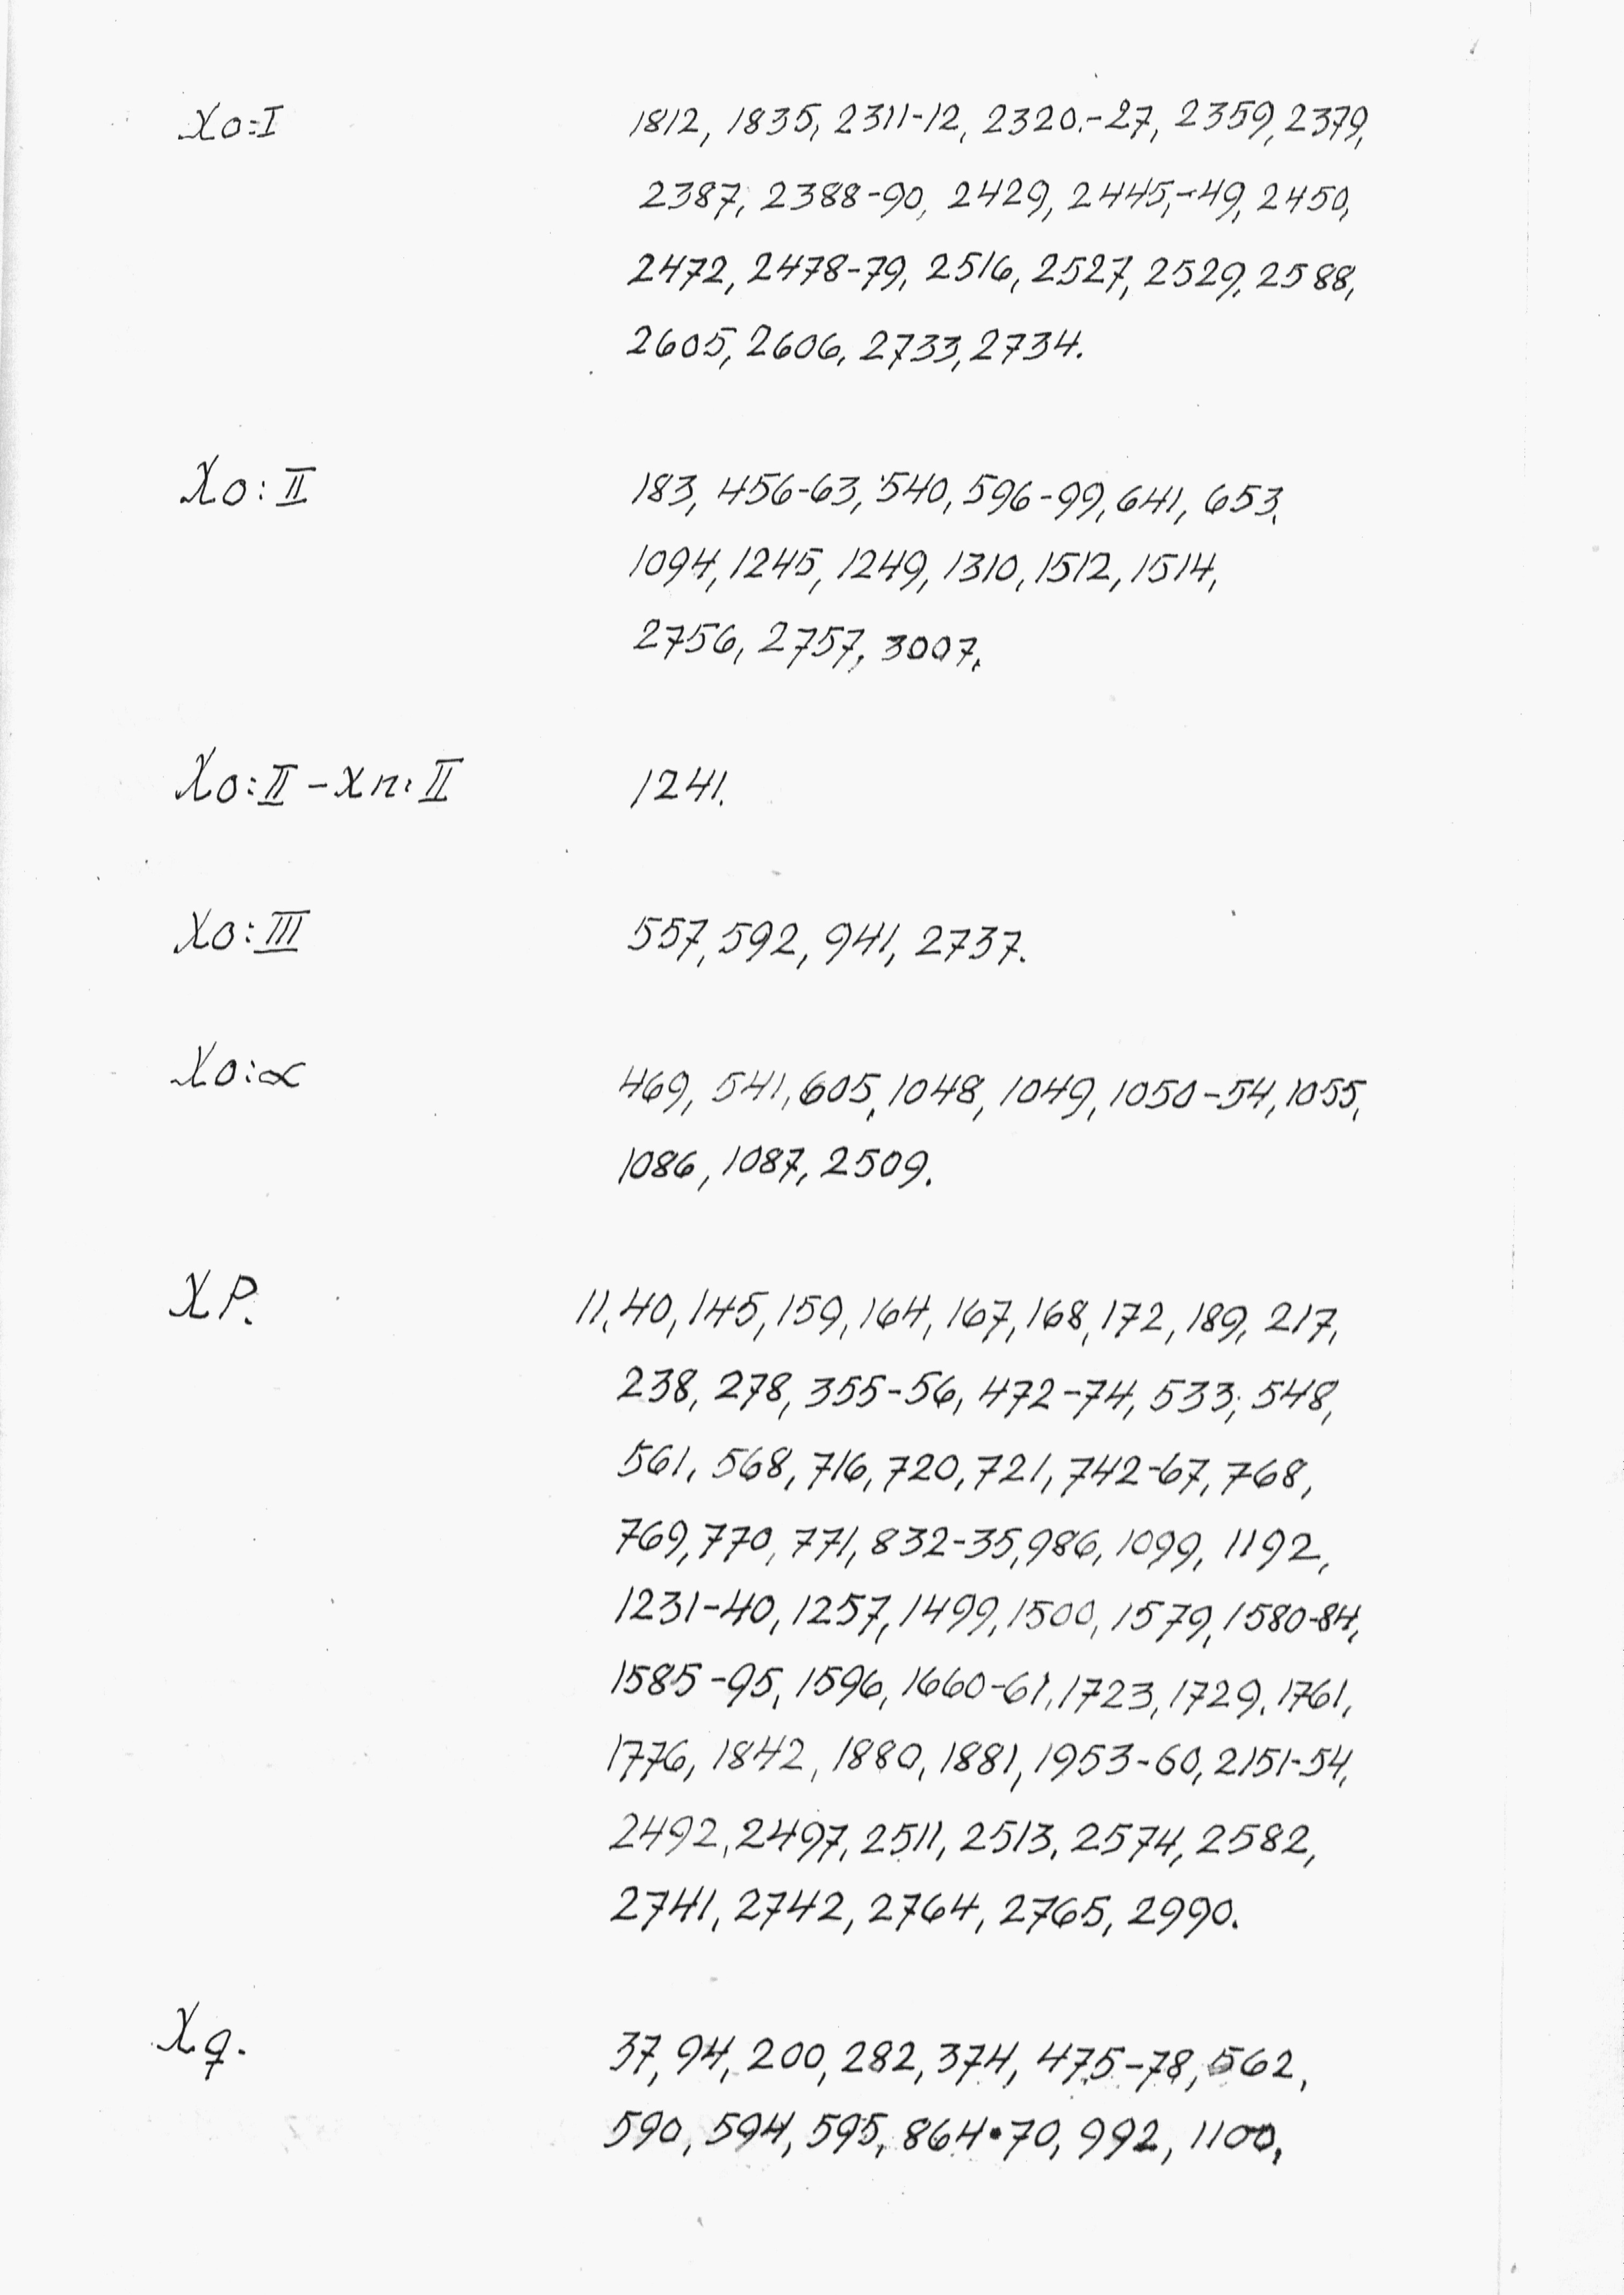 Xo:I 1812, 1835, 2311-12, 2320.-27, 2359, 2379,
2387, 2388-90, 2429, 2445,-49, 2450,
2472, 2478-79, 2516, 2527, 2529, 2588,
2605, 2606, 2733, 2734.
Xo:II 183, 456-63, 540, 596-99, 641, 653,
1094, 1245, 1249, 1310, 1512, 1514,
2756, 2757, 3007.
Xo:II-Xn:II 1241.
Xo:III 557, 592, 941, 2737.
Xo:α 469, 541, 605, 1048, 1049, 1050-54, 1055,
1086, 1087, 2509.
XP. 11, 40, 145, 159, 164, 167, 168, 172, 189, 217,
238, 278, 355-56, 472-74, 533, 548,
561, 568, 716, 720, 721, 742-67, 768,
769, 770, 771, 832-35, 986, 1099, 1192,
1231-40, 1257, 1499, 1500, 1579, 1580-84,
1585-95, 1596, 1660-61, 1723, 1729, 1761,
1776, 1842, 1880, 1881, 1953-60, 2151-54,
2492, 2497, 2511, 2513, 2574, 2582,
2741, 2742, 2764, 2765, 2990.
Xq. 37, 94, 200, 282, 374, 475-78, 562,
590, 594, 595, 864-70, 992, 1100,